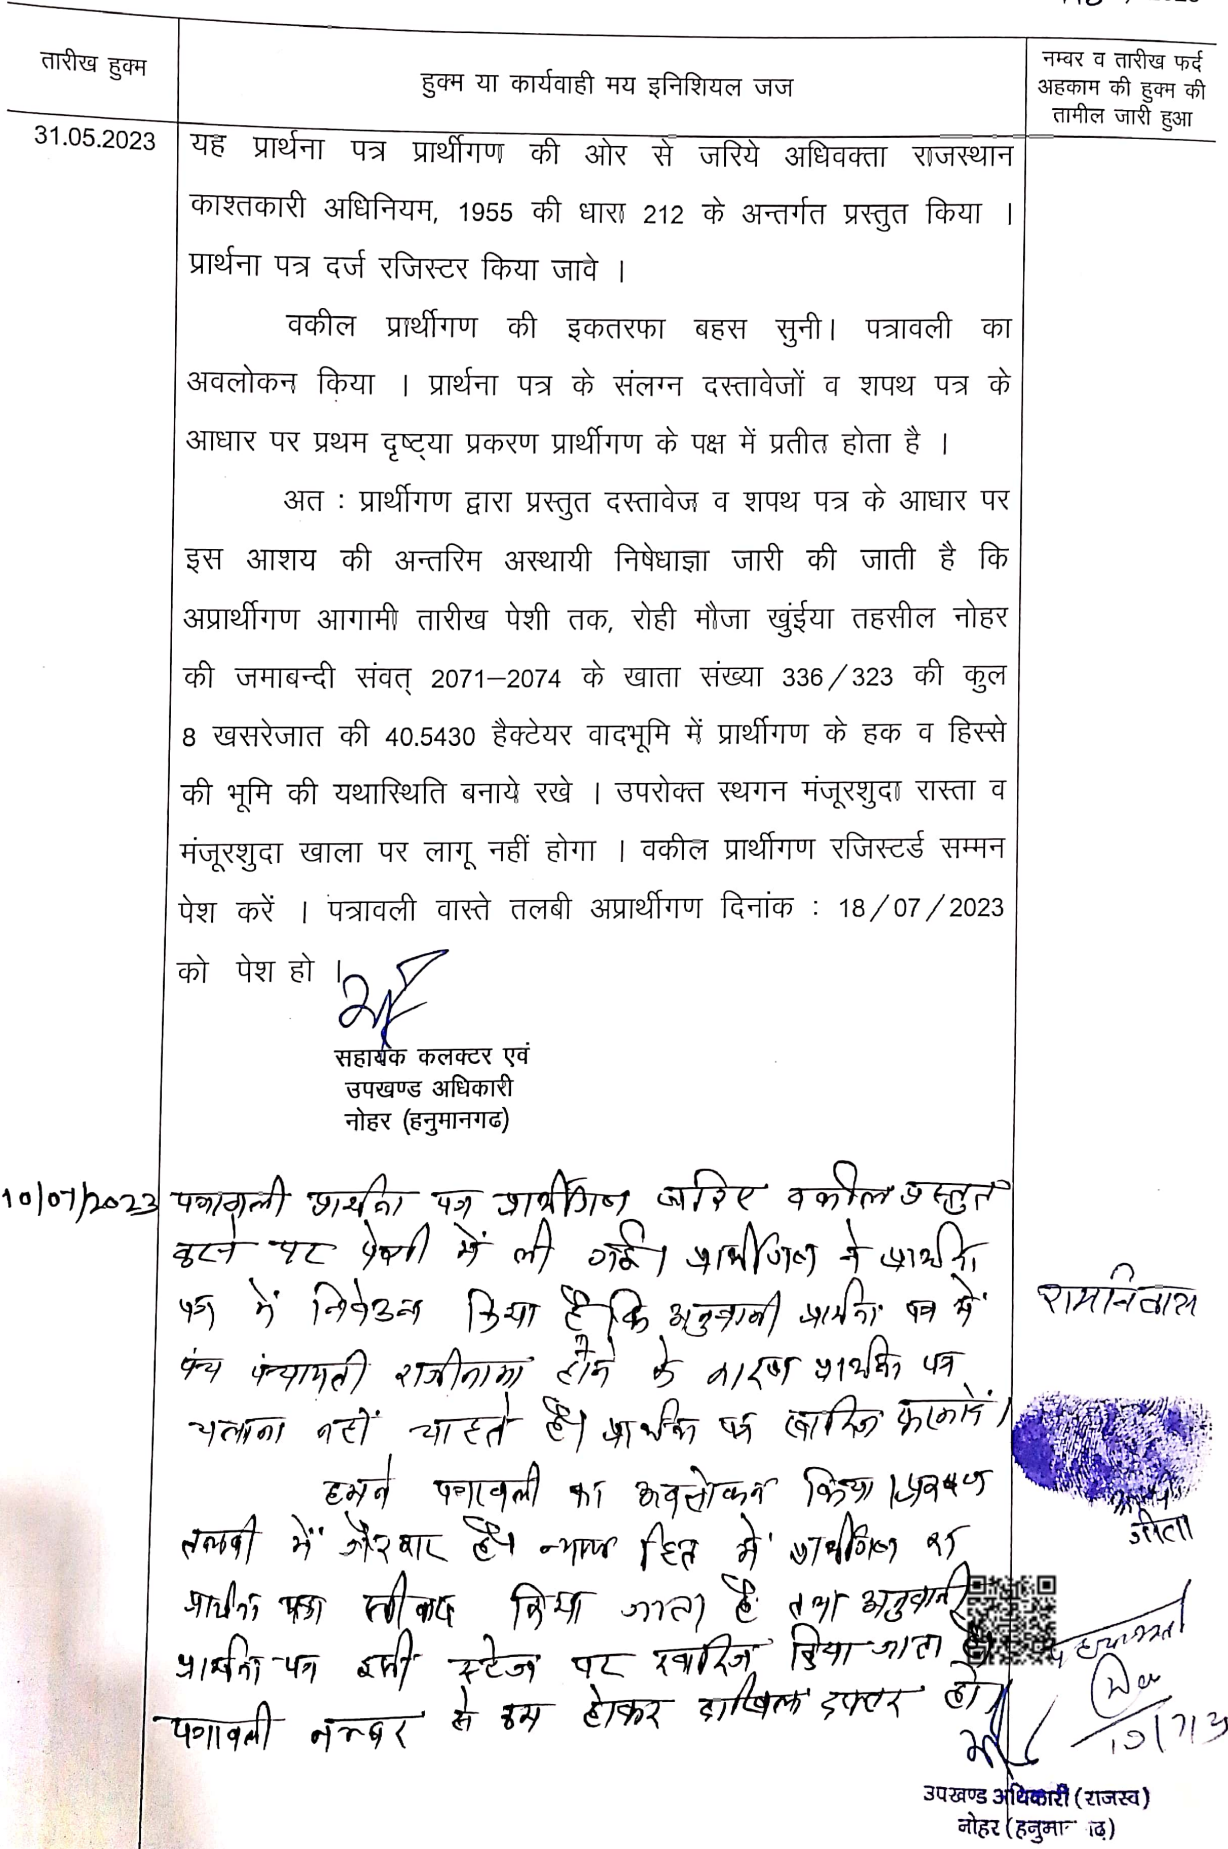 2023
तारीख हुक्म
हुक्म या कार्यवाही मय इनिशियल जज
नम्बर व तारीख फर्द
अहकाम की हुक्म की
तामील जारी हुआ
31.05.2023
यह प्रार्थना पत्र प्रार्थीगण की ओर से जरिये अधिवक्ता राजस्थान
काश्तकारी अधिनियम, 1955 की धारा 212 के अन्तर्गत प्रस्तुत किया ।
प्रार्थना पत्र दर्ज रजिस्टर किया जावे ।
वकील प्रार्थीगण की इकतरफा बहस सुनी। पत्रावली का
अवलोकन किया । प्रार्थना पत्र के संलग्न दस्तावेजों व शपथ पत्र के
आधार पर प्रथम दृष्ट्या प्रकरण प्रार्थीगण के पक्ष में प्रतीत होता है ।
अत : प्रार्थीगण द्वारा प्रस्तुत दस्तावेज व शपथ पत्र के आधार पर
इस आशय की अन्तरिम अस्थायी निषेधाज्ञा जारी की जाती है कि
अप्रार्थीगण आगामी तारीख पेशी तक, रोही मौजा खुंईया तहसील नोहर
की जमाबन्दी संवत् 2071–2074 के खाता संख्या 336/323 की कुल
8 खसरेजात की 40.5430 हैक्टेयर वादभूमि में प्रार्थीगण के हक व हिस्से
की भूमि की यथास्थिति बनाये रखे । उपरोक्त स्थगन मंजूरशुदा रास्ता व
मंजूरशुदा खाला पर लागू नहीं होगा । वकील प्रार्थीगण रजिस्टर्ड सम्मन
पेश करें । पत्रावली वास्ते तलबी अप्रार्थीगण दिनांक : 18/07/2023
को पेश हो ।
सहायक कलक्टर एवं
उपखण्ड अधिकारी
नोहर (हनुमानगढ)
10/07/2023
पत्रावली प्रार्थना पत्र प्रार्थीगण जरिए वकील प्रस्तुत
करने पर पेशी में ली गई। प्रार्थीगण ने प्रार्थना
पत्र में निवेदन किया है कि अनुवानी प्रार्थना पत्र में
पंच पंचायती राजीनामा होने के कारण प्रार्थना पत्र
चलाना नहीं चाहते है। प्रार्थना पत्र खारिज फरमावें।
रामनिवास
हमने पत्रावली का अवलोकन किया। प्रकरण
गीता
तलबी में जैरकार है। न्याय हित में प्रार्थीगण का
प्रार्थना पत्र स्वीकार किया जाता है तथा अनुवानी
प्रार्थना पत्र इसी स्टेज पर खारिज किया जाता है।
पत्रावली नम्बर से कम होकर दाखिल दफ्तर हो।
10/7/23
उपखण्ड अधिकारी (राजस्व)
नोहर (हनुमानगढ़)